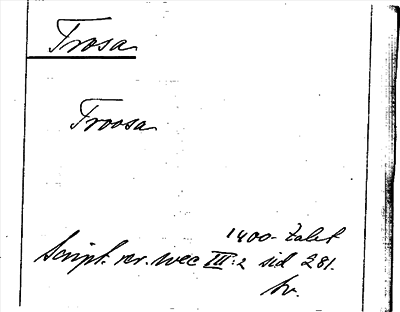 Trosa
Troosa
1400-talet
Script. rer. svec III:2 sid 281.